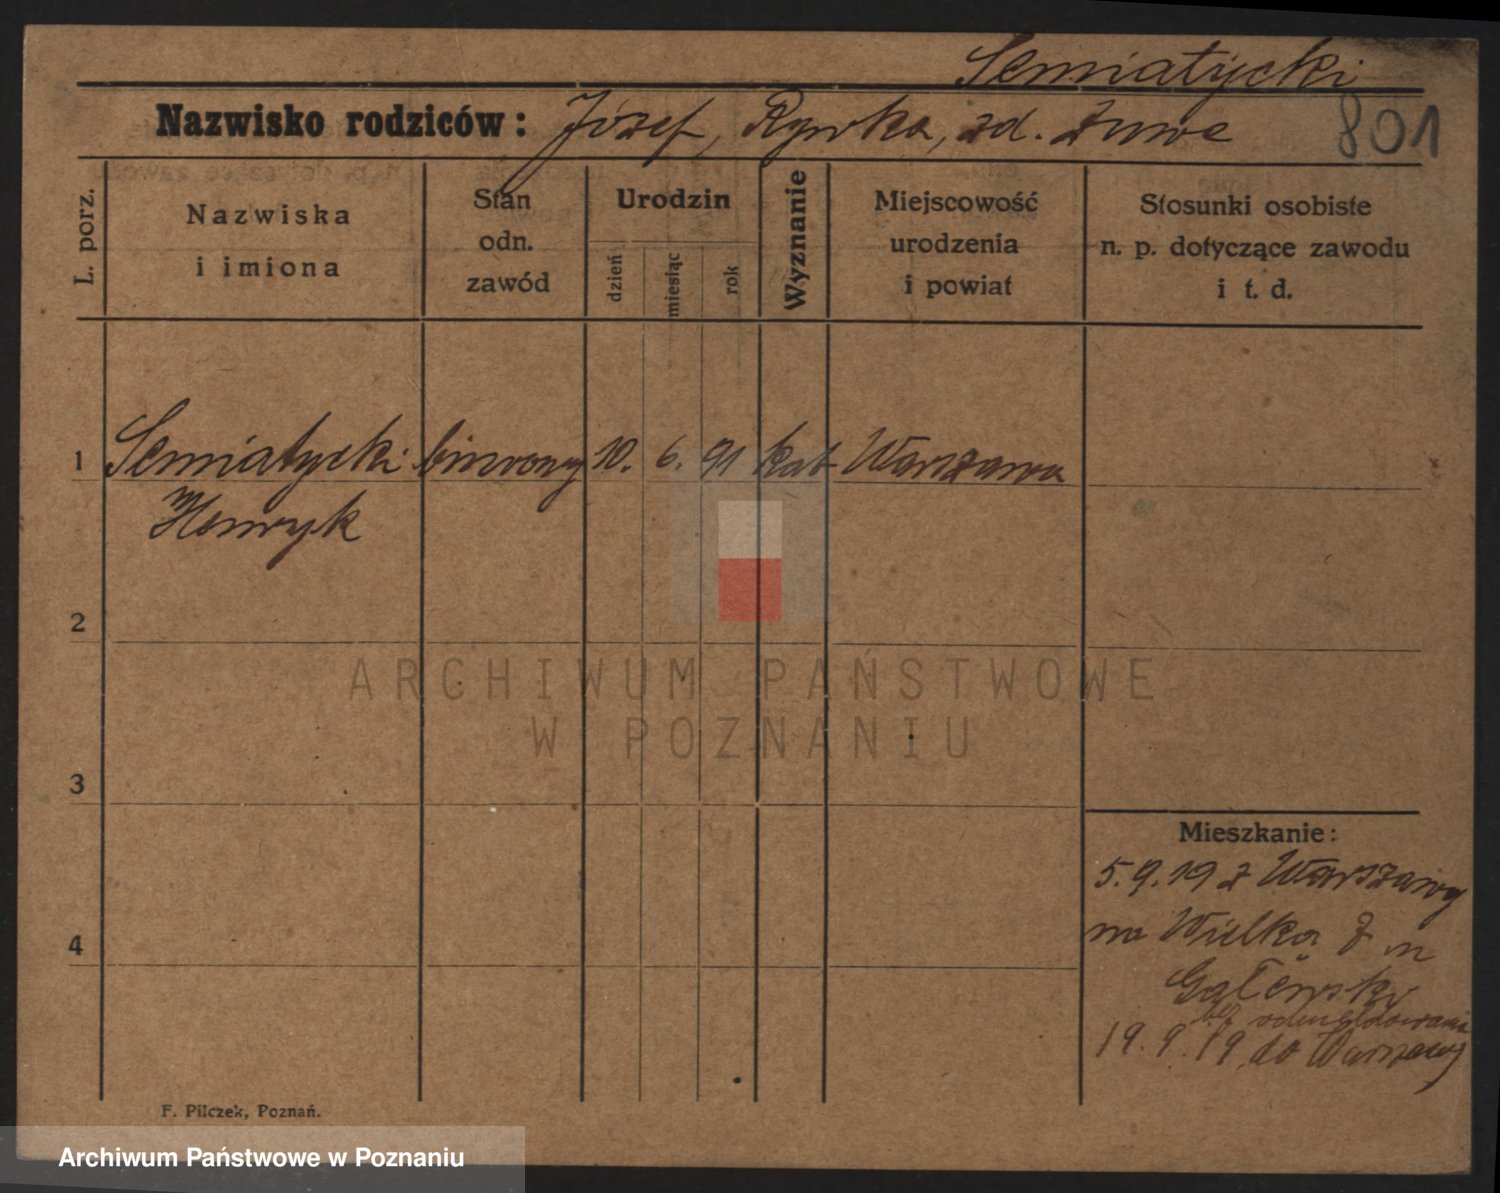 Semiatycki
Nazwisko rodziców: Józef, Rywka, zd. 
801
L. porz.
Nazwiska
i imiona
Stan
odn.
zawód
Urodzin
dzień
miesiąc
rok
Wyznanie
Miejscowość
urodzenia
i powiat
Stosunki osobiste
n. p. dotyczące zawodu
i t. d.
1 Semiatycki biurowy 10. 6. 91 kat Warszawa
Henryk
2
3
4
Mieszkanie:
5.9.19 z Warszawy
na Wielka 7
bez odmeldowania
19.9.19 do Warszawy
F. Pilczek, Poznań.
ARCHIWUM PAŃSTWOWE
W POZNANIU
Archiwum Państwowe w Poznaniu